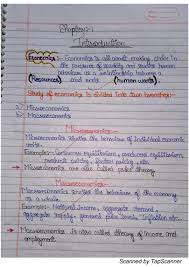 Chapter-1
Introduction
Economics:- Economics is all about making choice in
the presence of scarcity and studies human
behaviour as a relationship between a
(Resources) and (human wants)
Study of economics is divided into two branches:-
a) Microeconomics
b) Macroeconomics
Microeconomics:-
Microeconomics studies the behaviour of individual economic
units.
Examples:- Consumer equilibrium, producer equilibrium,
product pricing, factor pricing, etc.
Microeconomics is also called price theory.
Macroeconomics:-
Macroeconomics studies the behaviour of the economy
as a whole.
Examples:- National income, aggregate demand,
aggregate supply, general price level, inflation etc.
Macroeconomics is also called theory of income and
employment.
Scanned by TapScanner